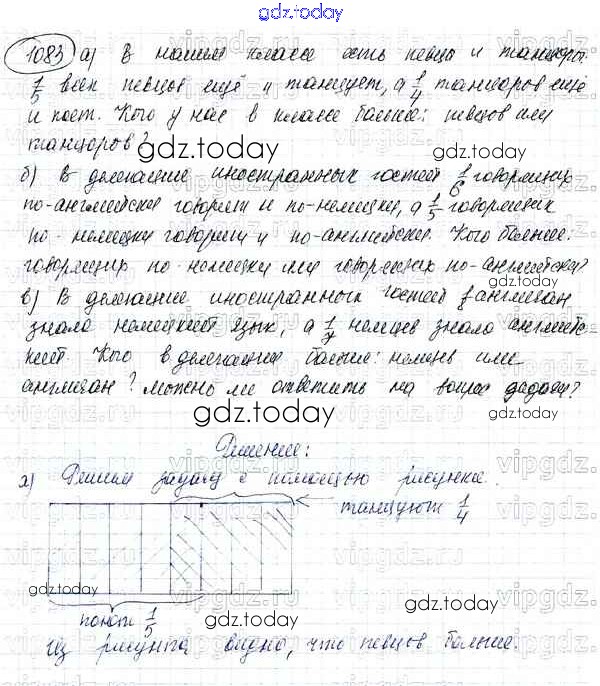 gdz.today
1083 а) В нашем классе есть певцы и танцоры.
1/5 всех певцов ещё и танцует, а 1/4 танцоров ещё
и поёт. Кого у нас в классе больше: певцов или
танцоров?
gdz.today
б) В делегации иностранных гостей 1/6 говорящих
по-английски говорят и по-немецки, а 1/5 говорящих
по-немецки говорят и по-английски. Кого больше:
говорящих по-немецки или говорящих по-английски?
в) В делегации иностранных гостей англичан
знало немецкий язык, а 1/7 немцев знало английс-
кий. Кого в делегации больше: немцев или
англичан? Можно ли ответить на вопрос задачи?
gdz.today
Решение:
а) Решим задачу с помощью рисунка.
танцуют 1/4
gdz.today
поют 1/5
gdz.today
Из рисунка видно, что певцов больше.
gdz.today